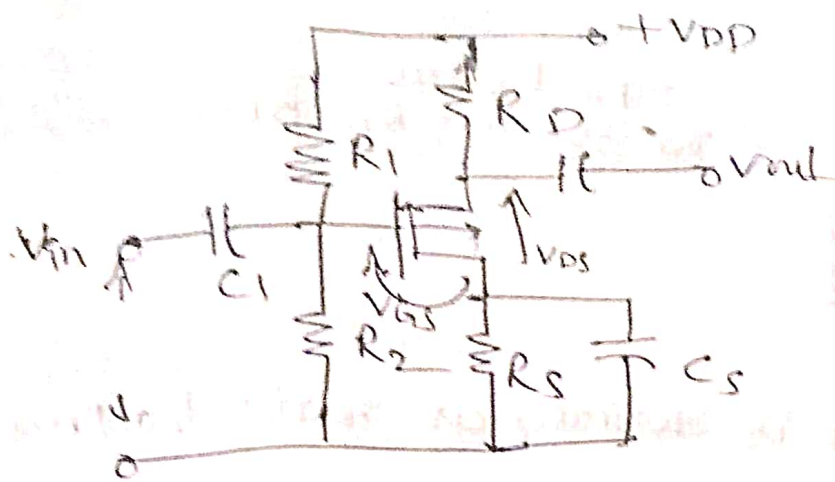 +VDD
RD
R1
Vout
Vin
C1
VDS
VGS
R2
RS
CS